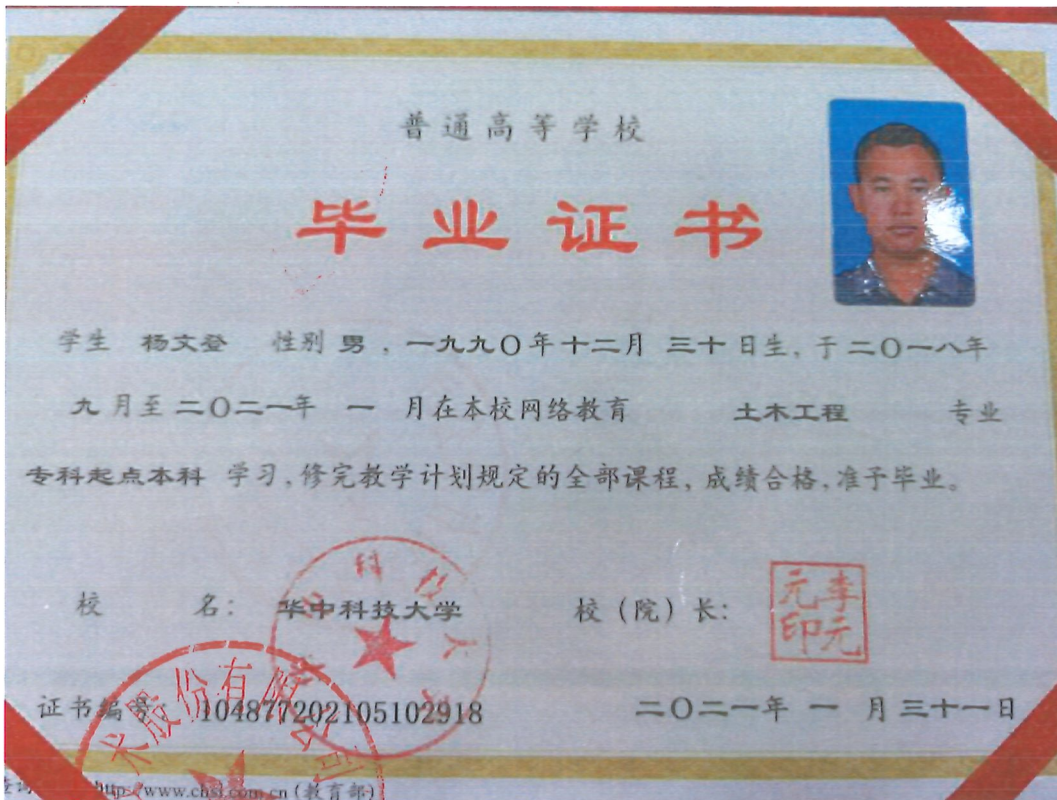 普通高等学校
毕业证书
学生 杨文登 性别 男，一九九〇年十二月 三十日生，于二〇一八年
九月至二〇二一年 一 月在本校网络教育 土木工程 专业
专科起点本科 学习，修完教学计划规定的全部课程，成绩合格，准予毕业。
校 名： 华中科技大学 校（院）长：
李元元印
科技大学
证书编号 104877202105102918 二〇二一年 一 月三十一日
术股份有限公司
http://www.chsi.com.cn（教育部）